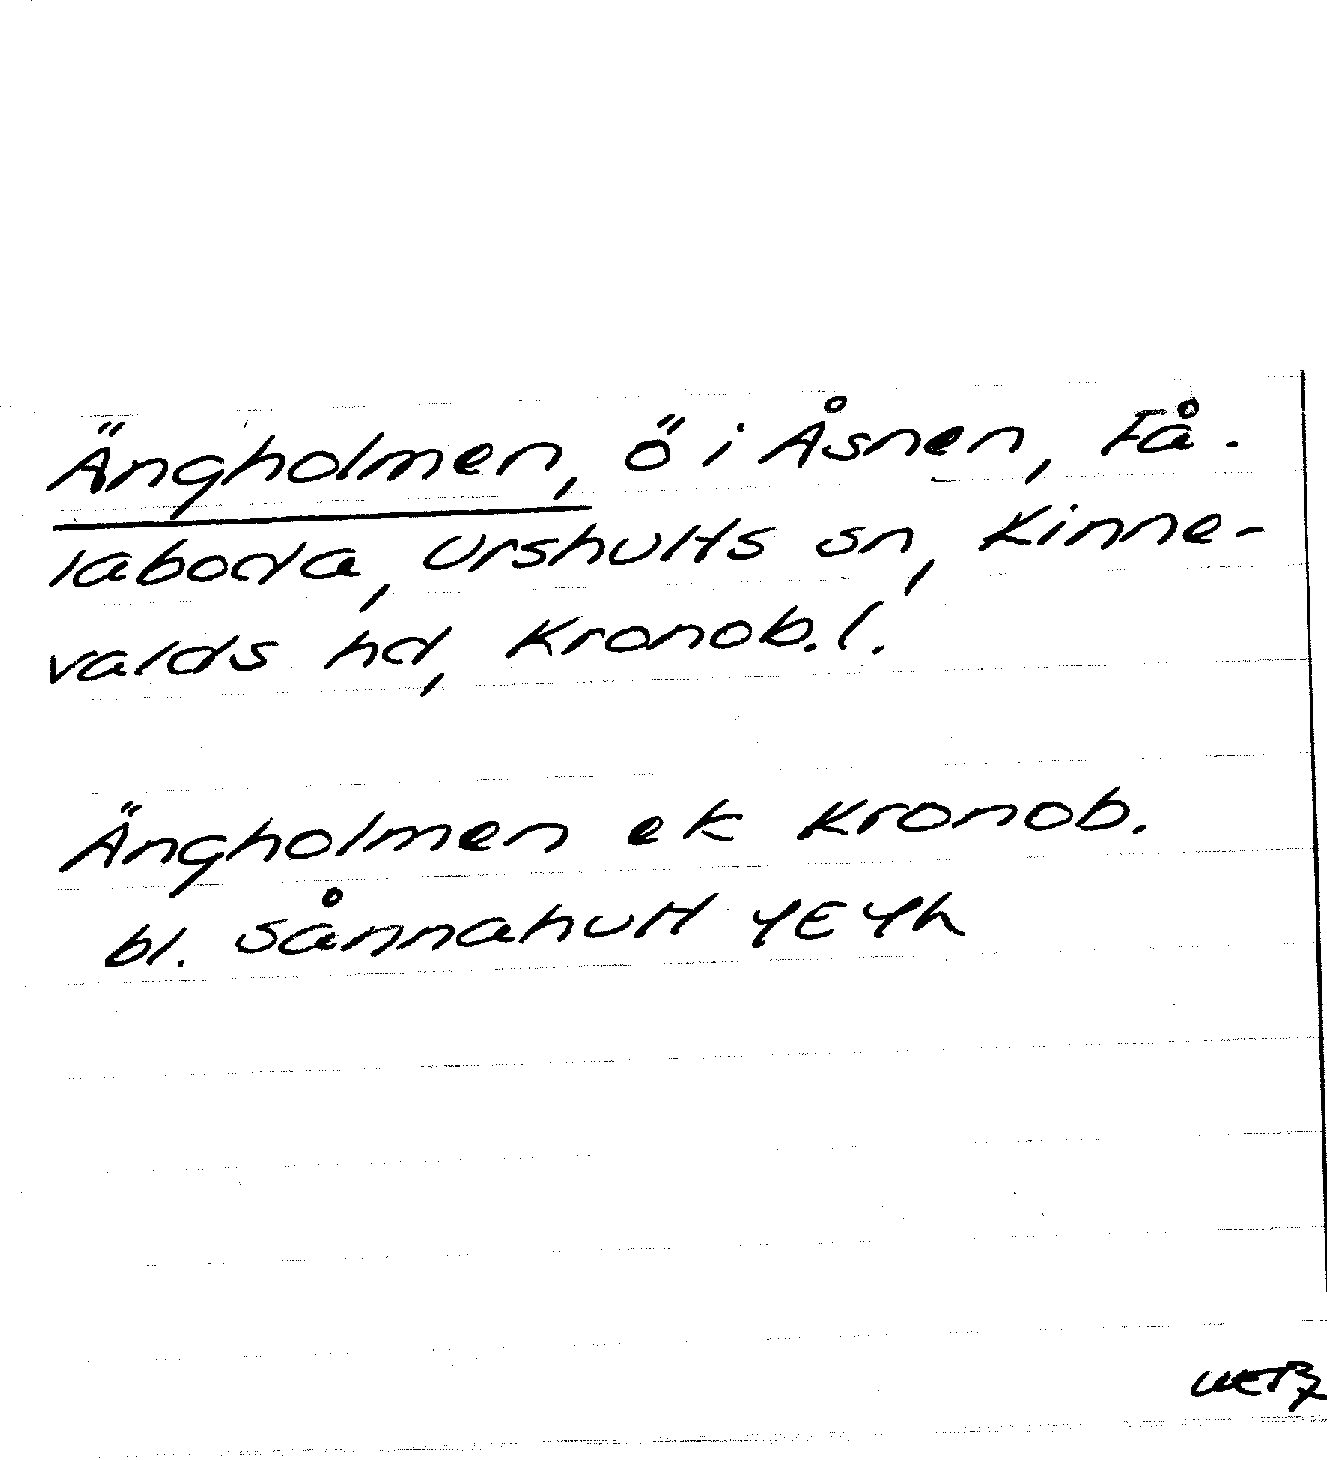 Ängholmen, ö i Åsnen, Få-
laboda, Urshults sn, Kinne-
valds hd, Kronob. l.
Ängholmen ek Kronob.
bl. Sånnahult 4E4h